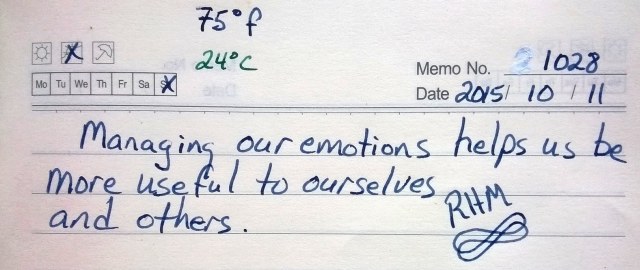 75°f
24°C
Memo No. 1028
Mo Tu We Th Fr Sa
Date 2015/ 10 / 11
Managing our emotions helps us be
more useful to ourselves
and others. RHM